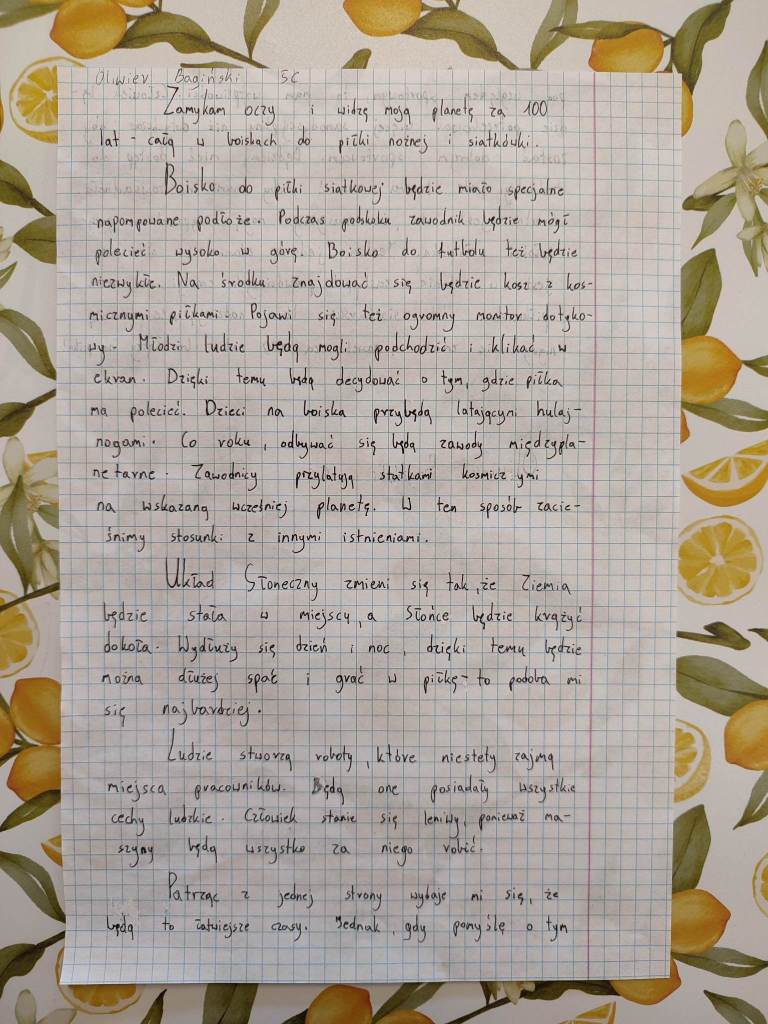 Oliwier Bagiński 5C
Zamykam oczy i widzę moją planetę za 100
lat - całą w boiskach do piłki nożnej i siatkówki.
Boisko do piłki siatkowej będzie miało specjalne
napompowane podłoże. Podczas podskoku zawodnik będzie mógł
polecieć wysoko w górę. Boisko do futbolu też będzie
niezwykłe. Na środku znajdować się będzie kosz z kos-
micznymi piłkami. Pojawi się też ogromny monitor dotyko-
wy. Młodzi ludzie będą mogli podchodzić i klikać w
ekran. Dzięki temu będą decydować o tym, gdzie piłka
ma polecieć. Dzieci na boiska przybędą latającymi hulaj-
nogami. Co roku, odbywać się będą zawody międzypla-
netarne. Zawodnicy przylatują statkami kosmicz ymi
na wskazaną wcześniej planetę. W ten sposób zacie-
śnimy stosunki z innymi istnieniami.
Układ Słoneczny zmieni się tak, że Ziemia
będzie stała w miejscu, a Słońce będzie krążyć
dokoła. Wydłuży się dzień i noc, dzięki temu będzie
można dłużej spać i grać w piłkę - to podoba mi
się najbardziej.
Ludzie stworzą roboty, które niestety zajmą
miejsca pracowników. Będą one posiadały wszystkie
cechy ludzkie. Człowiek stanie się leniwy, ponieważ ma-
szyny będą wszystko za niego robić.
Patrząc z jednej strony wydaje mi się, że
będą to łatwiejsze czasy. Jednak, gdy pomyślę o tym